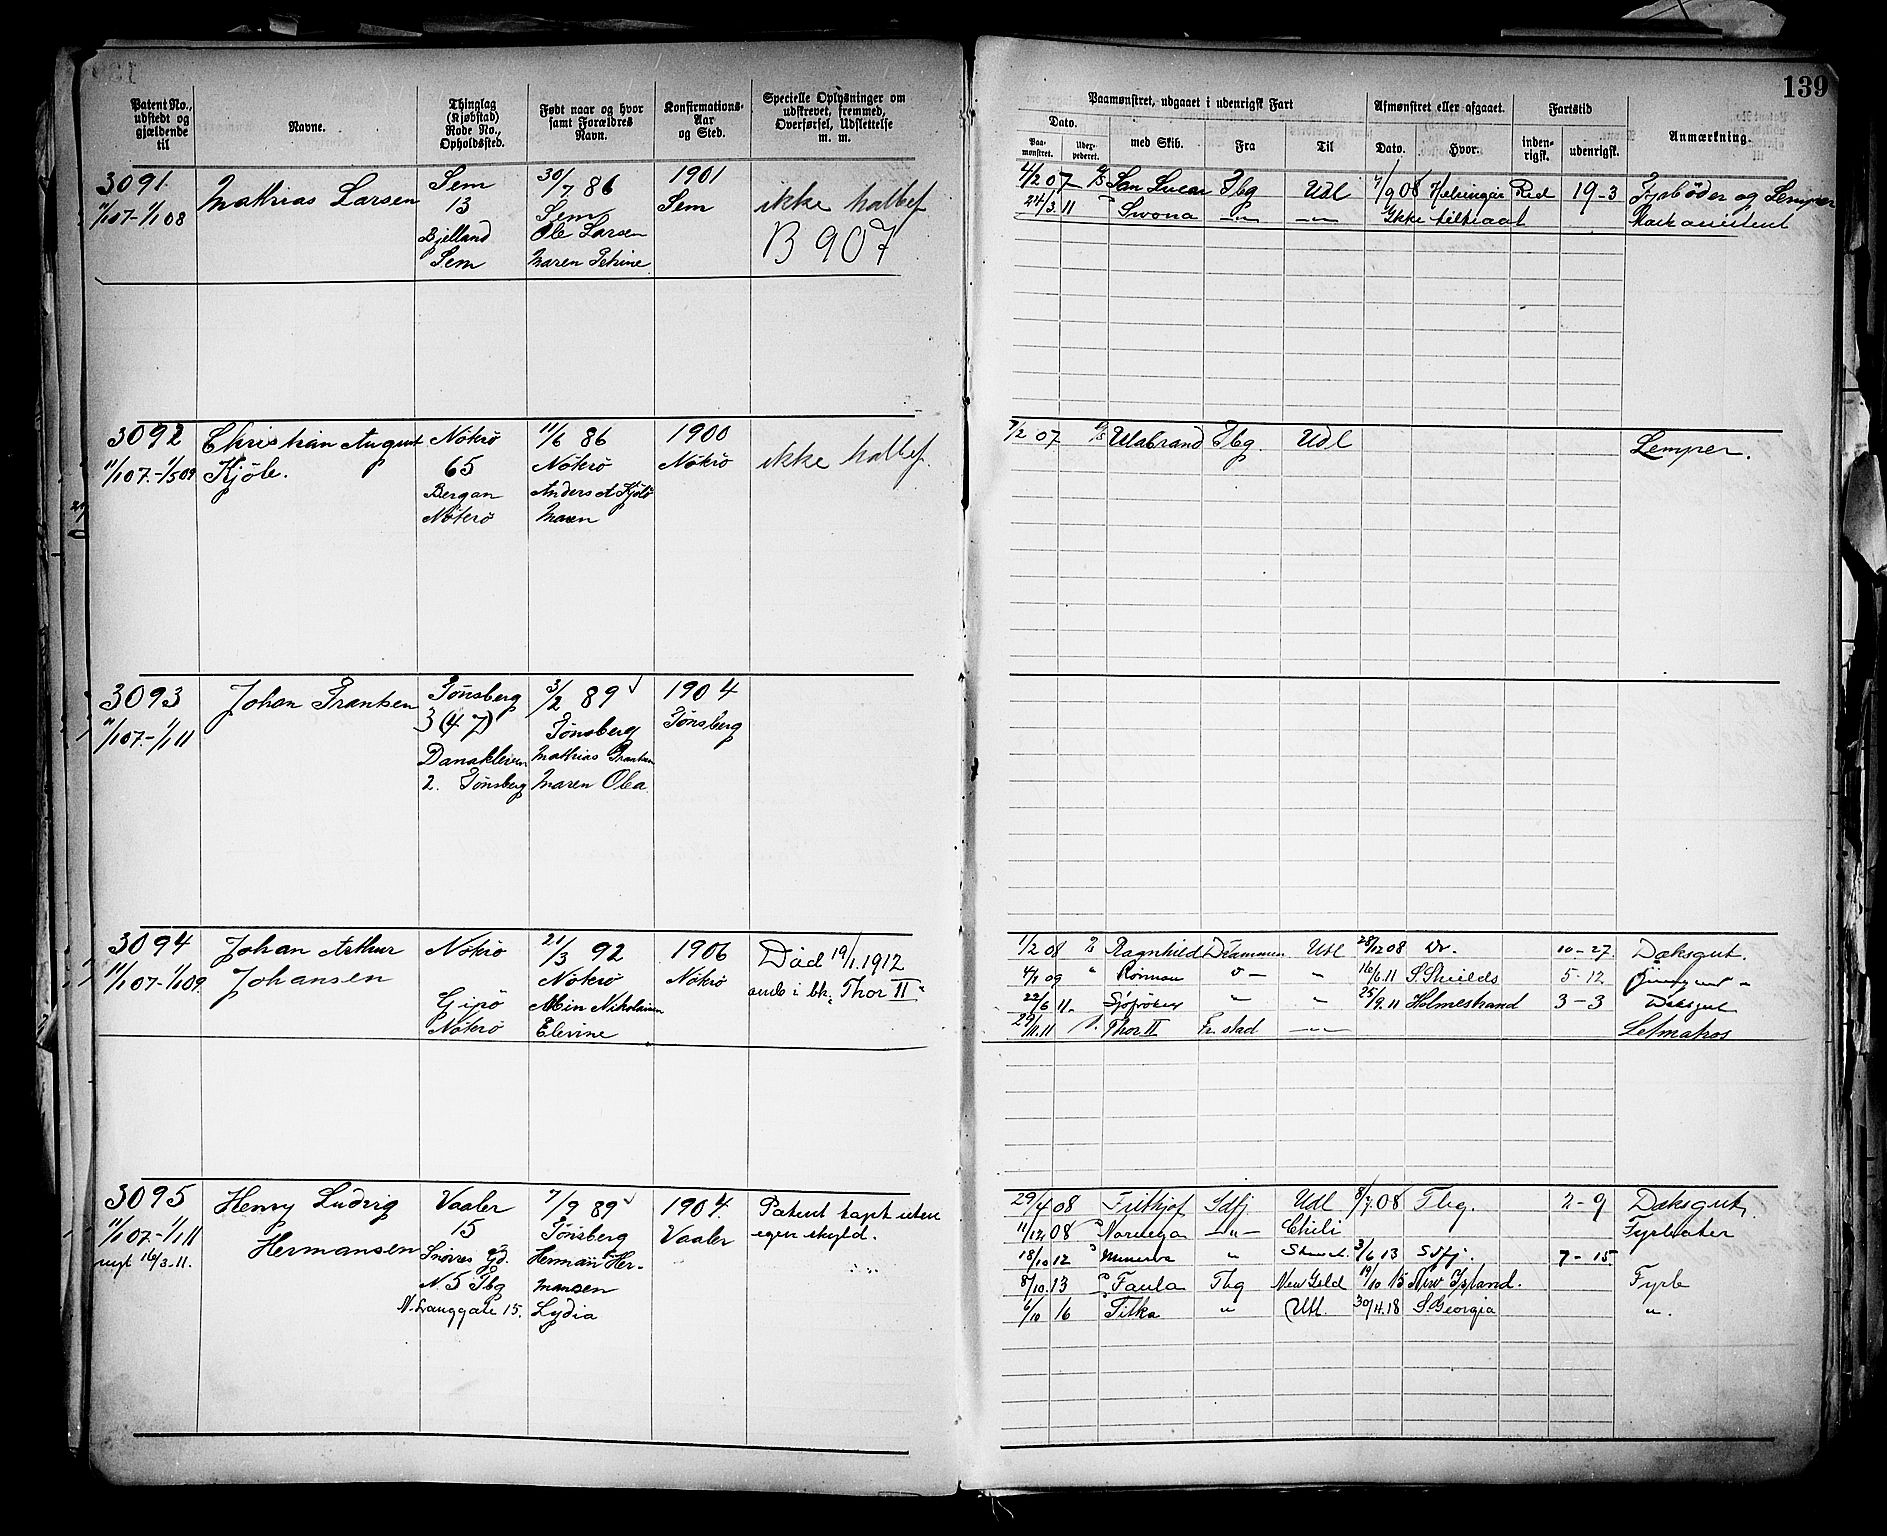 139
Patent No., udstedt og gjældende til
Navne.
Thinglag (Kjøbstad) Rode No., Opholdssted.
Født naar og hvor samt Forældres Navn.
Konfirmations- Aar og Sted.
Specielle Oplysninger om udskrevet, fremmed, Overførsel, Udslettelse m. m.
Paamønstret, udgaaet i udenrigsk Fart
Afmønstret eller afgaaet.
Fartstid
Dato.
Paa- mønstret.
med Skib.
Fra
Til
Dato.
Hvor.
inden- rigsk.
udenrigsk.
Anmærkning.
3091 Mathias Larsen Sem 30/7 86 1901 ikke halbef
11/1 07-1/1 08 13 Sem Sem B 907
Bjelland Ole Larsen
Sem Maren
4/2 07 San Lucar Tbg Udl 7/9 08 Helsingør Red 19-3 Fyrbøder og Lemper
24/3 11 Swona -"- -"- Ikke tiltraat
3092 Christian August Nøterø 11/6 86 1900 ikke halbef.
11/1 07.-1/5 09 Kjøle. 65 Nøterø Nøterø
Bergan Anders A Kjøle
Nøterø Maren
7/2 07 Ulabrand Tbg. Udl Lemper.
3093 Johan Frantsen Tønsberg 3/2 89 1904
11/1 07.-1/1 11 3 (47) Tønsberg Tønsberg
Mathias Frantsen
2. Tønsberg Maren
3094 Johan Arthur Nøterø 21/3 92 1906 Død 19/1 1912
11/1 07-1/1 09. Johansen Nøterø Nøterø ombo i bk. "Thor II"
Gipø
Nøterø Elevine
1/2 08 Ragnhild Drammen Udl 28/12 08 Dr. 10-27. Dæksgut.
4/1 09 " " 16/6 11 S. Shields 5-12 "
22/6 11. " " 25/9 11 Holmestrand 3-3 Dæksgut
29/11 11 Thor II Fr. stad -"- Letmatros
3095 Henry Ludvig Vaaler 7/9 89 1904. Patent tapt uten
11/1 07.-1/1 11 Hermansen 15 Tønsberg Vaaler egen skyld.
nyt 16/3-11. Gd. Herman Her-
N 5 Tbg mansen
N. Langgate 15. Lydia
29/4 08 Frithjof Sdfj. Udl 8/7 08 Tbg. 2-9 Dæksgut.
11/12 08 Norvega -"- Chili
18/10 12 Minerva " 3/6 13 Sdfj. 7-15.
8/10 13 Paula Tbg New Geld 19/10 15 New Island. Fyrb
6/10 16 Titka " Udl 30/4 18 S. Georgia ".